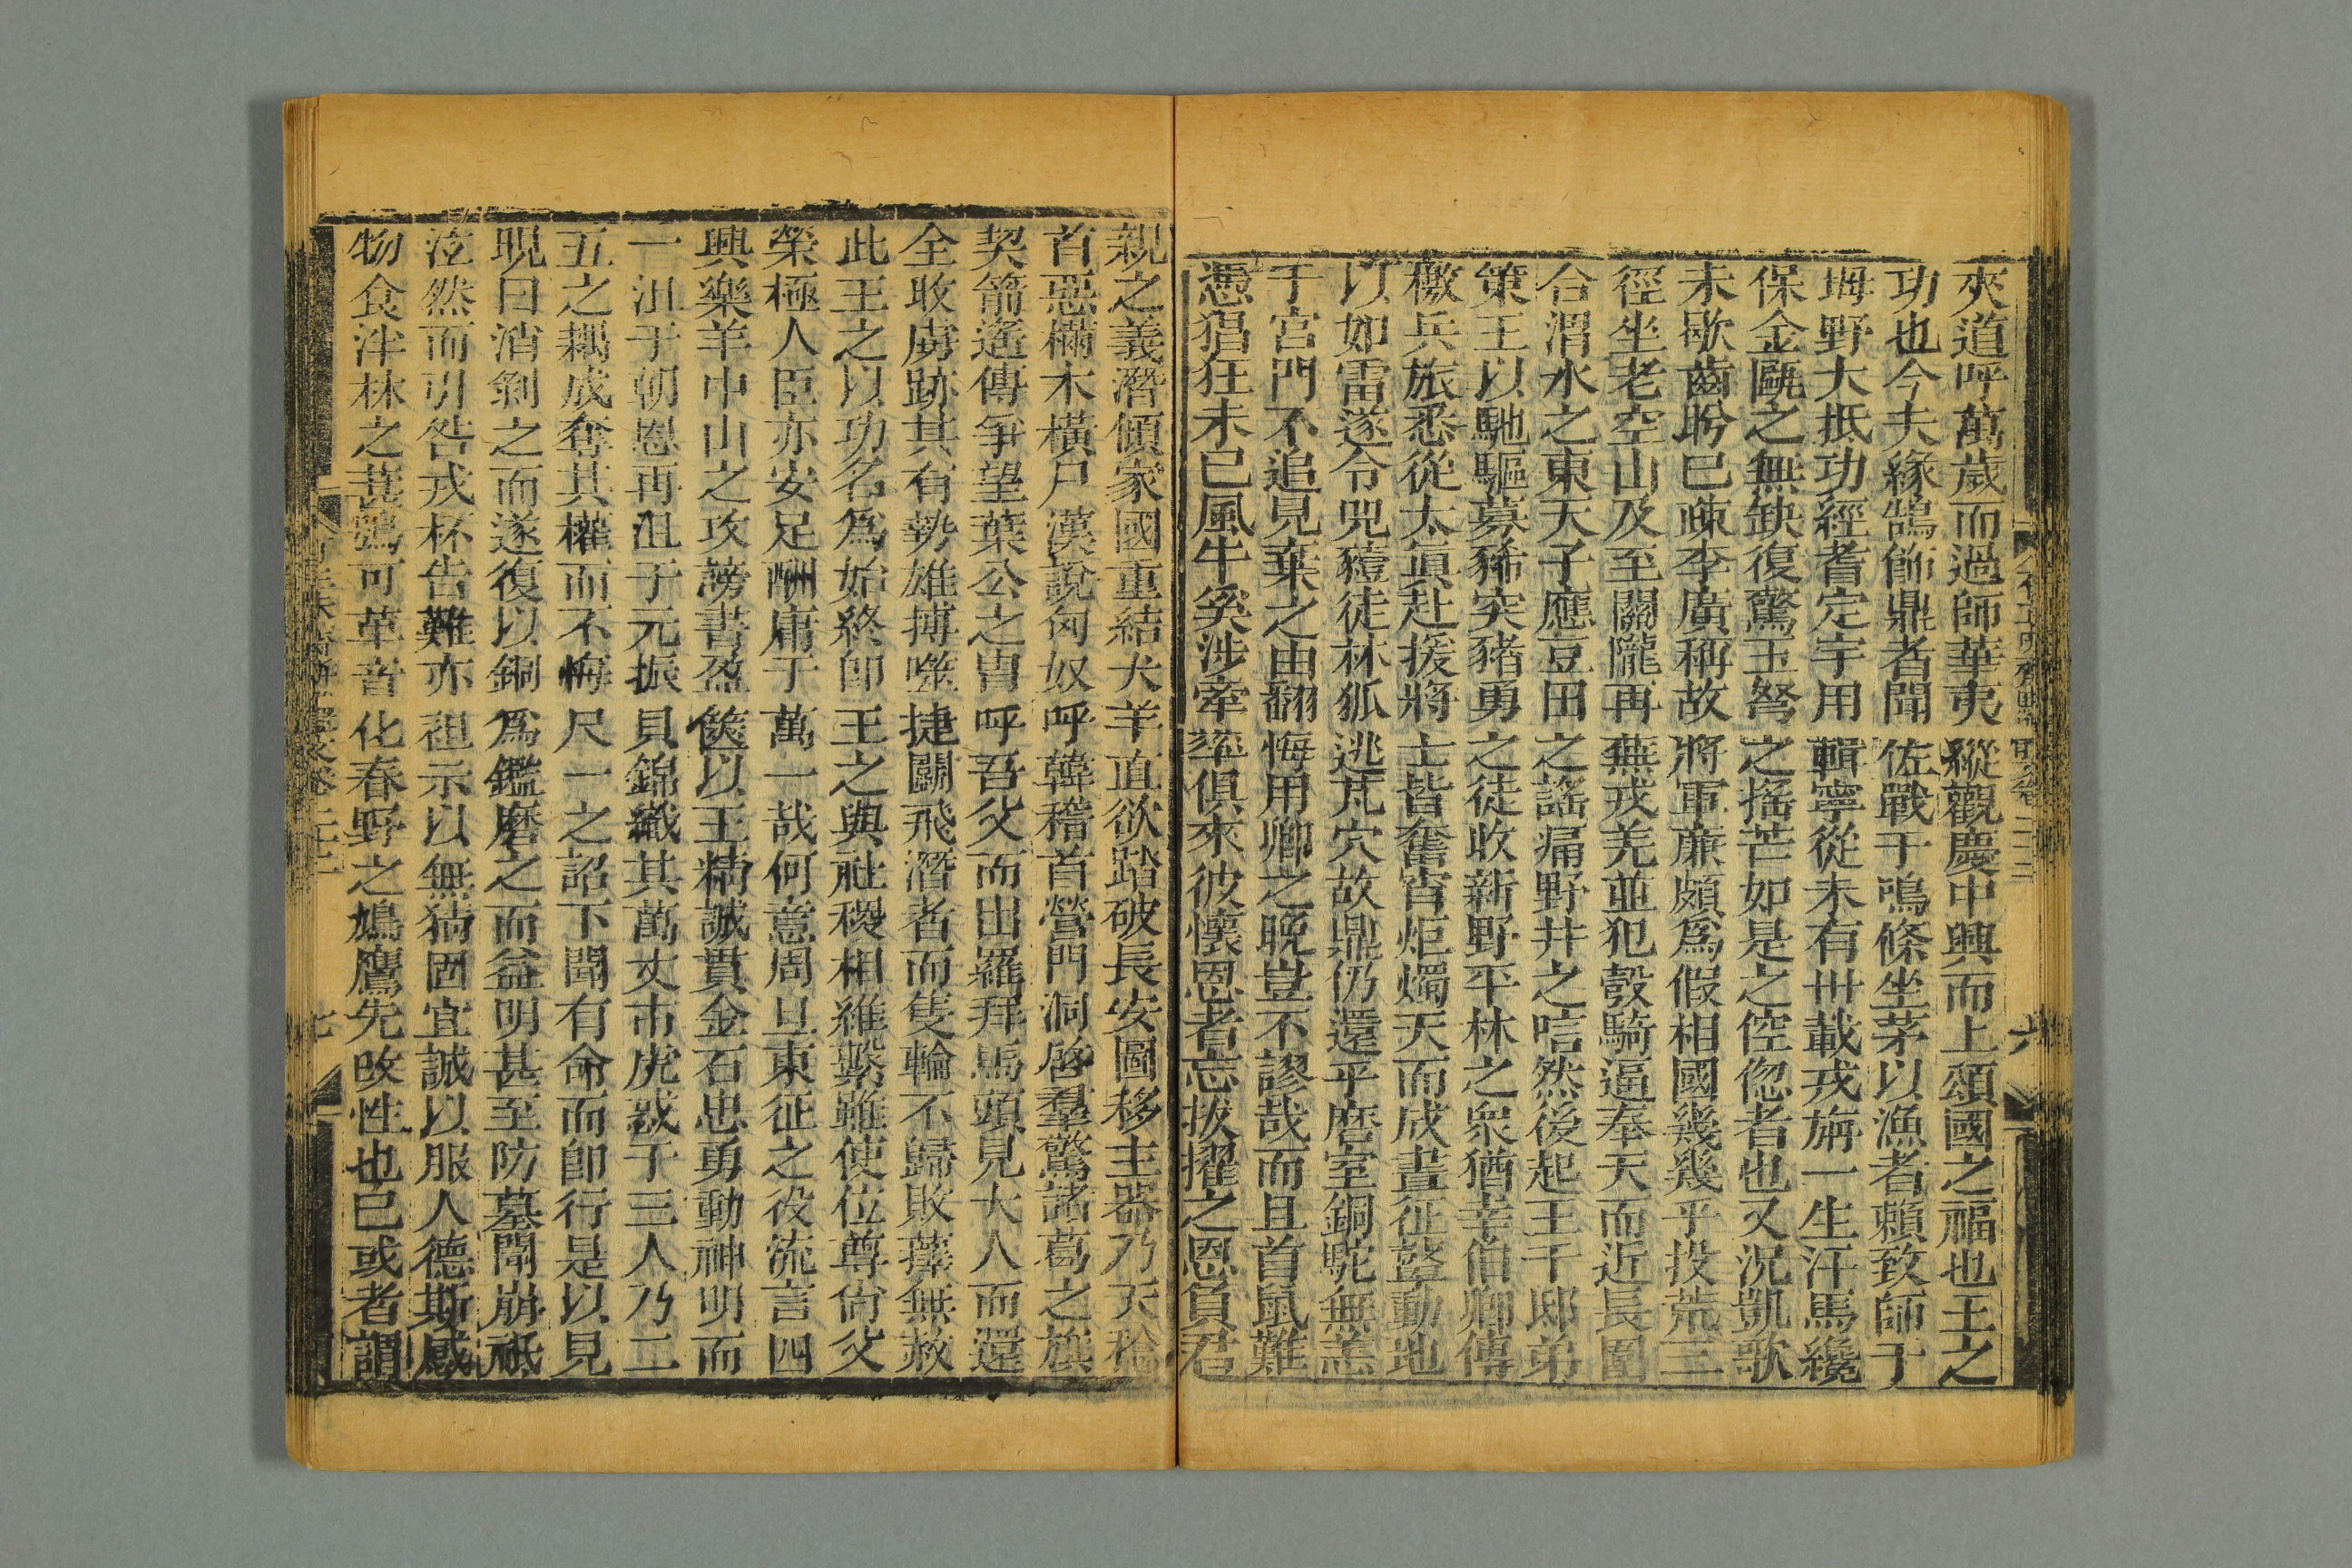 夾道呼萬歲而過師華夷縱觀慶中興而上頌國之福也王之
功也今夫緣鵠飾鼎者聞佐戰于鳴條坐茅以漁者賴致師于
坶野大抵功經耆定宇用輯寧從未有卅載戎旃一生汗馬纔
保金甌之無缺復驚玉弩之搖芒如是之倥傯者也又況凱歌
未歇齒肹已疎李廣稱故將軍廉頗爲假相國幾幾乎投荒三
徑坐老空山及至關隴再蕪戎羌並犯彀騎逼奉天而近長圍
合渭水之東天子應豆田之謠痛野井之唁然後起王于邸弟
策王以馳驅募豨突豬勇之徒收新野平林之衆猶幸伯卿傳
檄兵旅悉從太眞赴援將士皆奮宵炬燭天而成晝征鼙動地
以如雷遂令咒豷徒林狐逃芃穴故鼎仍還乎磨室銅駝無恙
于宮門不追見棄之由翻悔用卿之晚豈不謬哉而且首鼠難
憑猖狂未已風牛奚涉牽率俱來彼懷恩者忘拔擢之恩負君
親之義潛傾家國重結犬羊直欲踏破長安圖移主器乃天稔
首惡槥木橫尸漢說匈奴呼韓稽首營門洞啓羣驚諸葛之旗
契箭遙傳爭望葉公之冑呼吾父而出羅拜馬頭見大人而還
全收虜跡其有勢雄搏噬捷鬭飛潛者而隻輪不歸敗蘀無赦
此王之以功名爲始終卽王之與社稷相維繫雖使位尊尙父
榮極人臣亦安足酬庸于萬一哉何意周旦東征之役流言四
興樂羊中山之攻謗書盈篋以王精誠貫金石忠勇動神明而
一沮于朝恩再沮于元振貝錦織其萬丈市虎惑于三人乃二
五之耦成奪其權而不悔尺一之詔下聞有命而卽行是以見
晛曰消剝之而遂復以銅爲鑑磨之而益明甚至防墓聞崩祗
泣然而引咎戎杯告難亦袒示以無猜固宜誠以服人德斯感
物食泮林之葚鴞可革音化春野之鳩鷹先改性也已或者謂
六
七